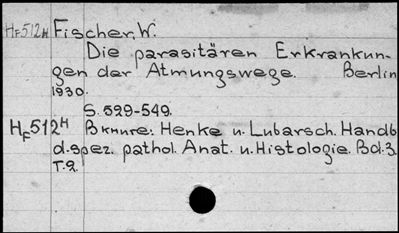 HF512H Fischer, W.
Die parasitären Erkrankun-
gen der Atmungswege. Berlin
1930.
S. 529-549.
HF512H В книге: Henke u. Lubarsch. Handb
d. spez. pathol. Anat. u. Histologie. Bd. 3.
T. 2.